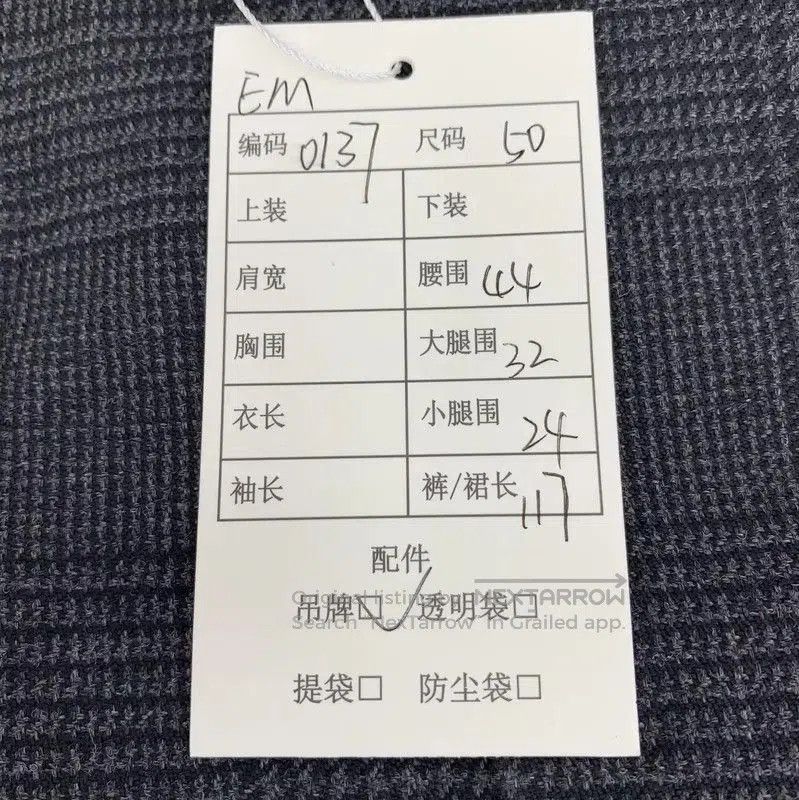 EM
编码 0137 尺码 50
上装 下装
肩宽 腰围 44
胸围 大腿围 32
衣长 小腿围 24
袖长 裤/裙长 117
配件
Original listing by NEXTARROW
吊牌☑ 透明袋□
Search "NexTarrow" in Grailed app.
提袋□ 防尘袋□